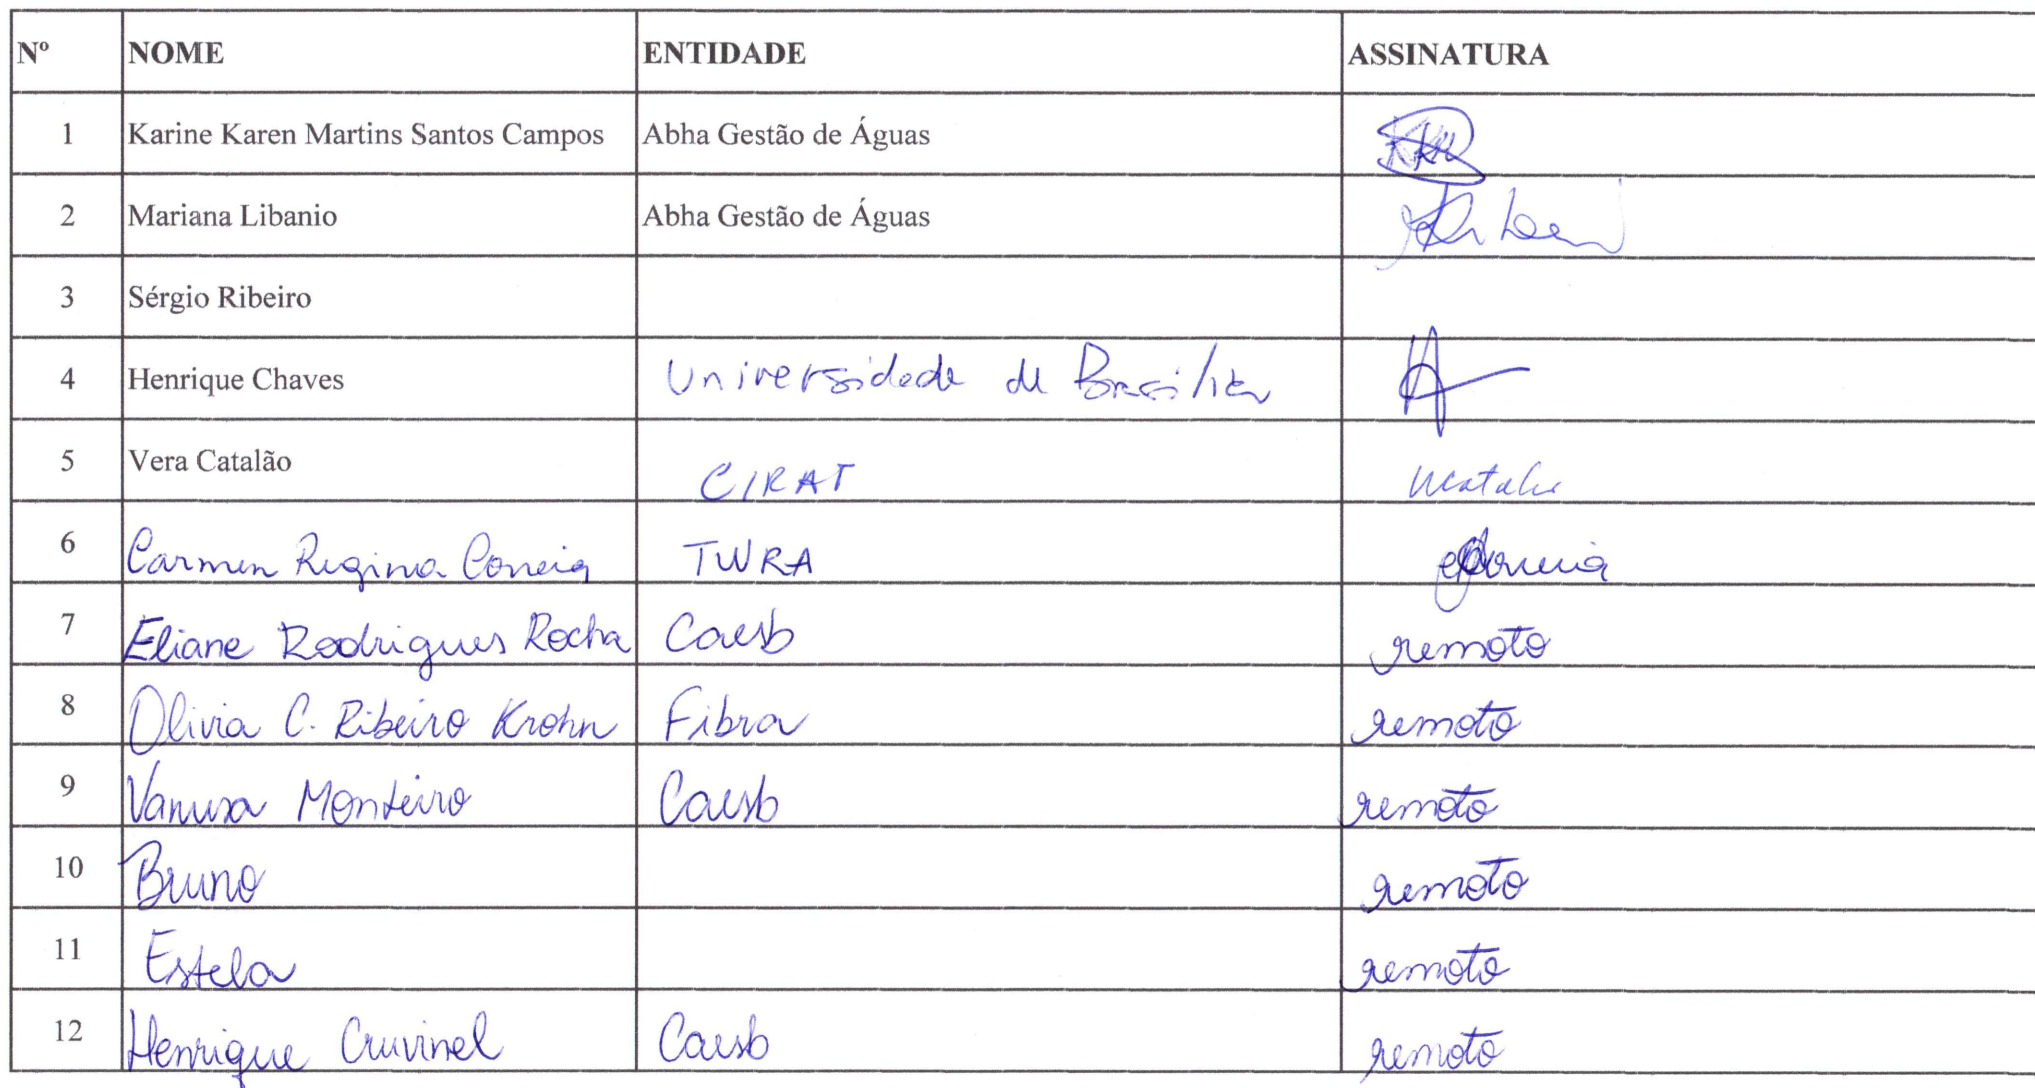 Nº NOME ENTIDADE ASSINATURA
1 Karine Karen Martins Santos Campos Abha Gestão de Águas
2 Mariana Libanio Abha Gestão de Águas
3 Sérgio Ribeiro
4 Henrique Chaves Universidade de Brasília
5 Vera Catalão CIRAT
6 Carmen Regina Correia TWRA
7 Eliane Rodrigues Rocha Caesb remoto
8 Olivia C. Ribeiro Krohn Fibra remoto
9 Vanusa Monteiro Caesb remoto
10 Bruno remoto
11 Estela remoto
12 Henrique Cruvinel Caesb remoto